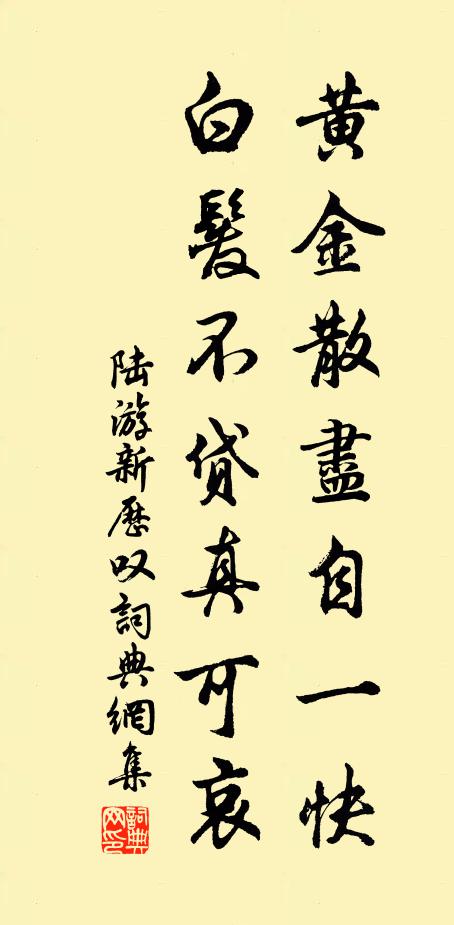 黄金散盡自一快
白髮不貸真可哀
陆游新歷叹詞典網集
詞典網印